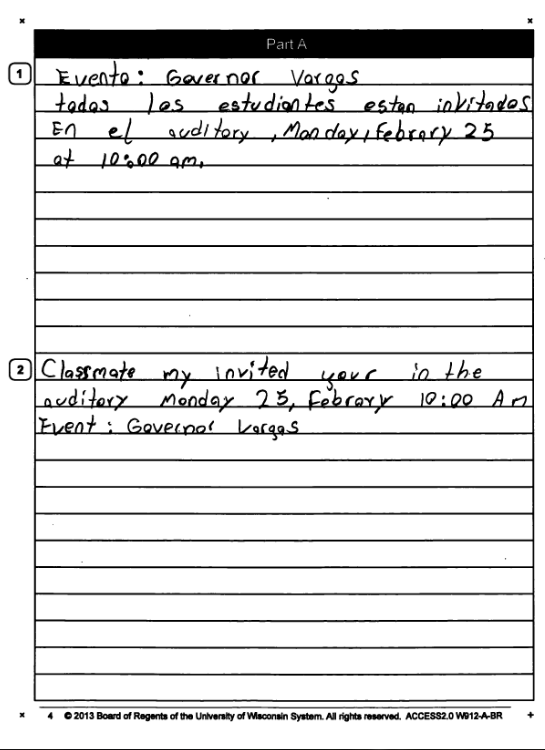 Part A
1
Evento: Governor Vargas
todos los estudiantes estan invitados
En el auditory, Monday, Febrary 25
at 10:00 am.
2
Classmate my invited your in the
auditory Monday 25, Febrary 10:00 Am
Event: Governor Vargas
4 © 2013 Board of Regents of the University of Wisconsin System. All rights reserved. ACCESS2.0 W912-A-BR